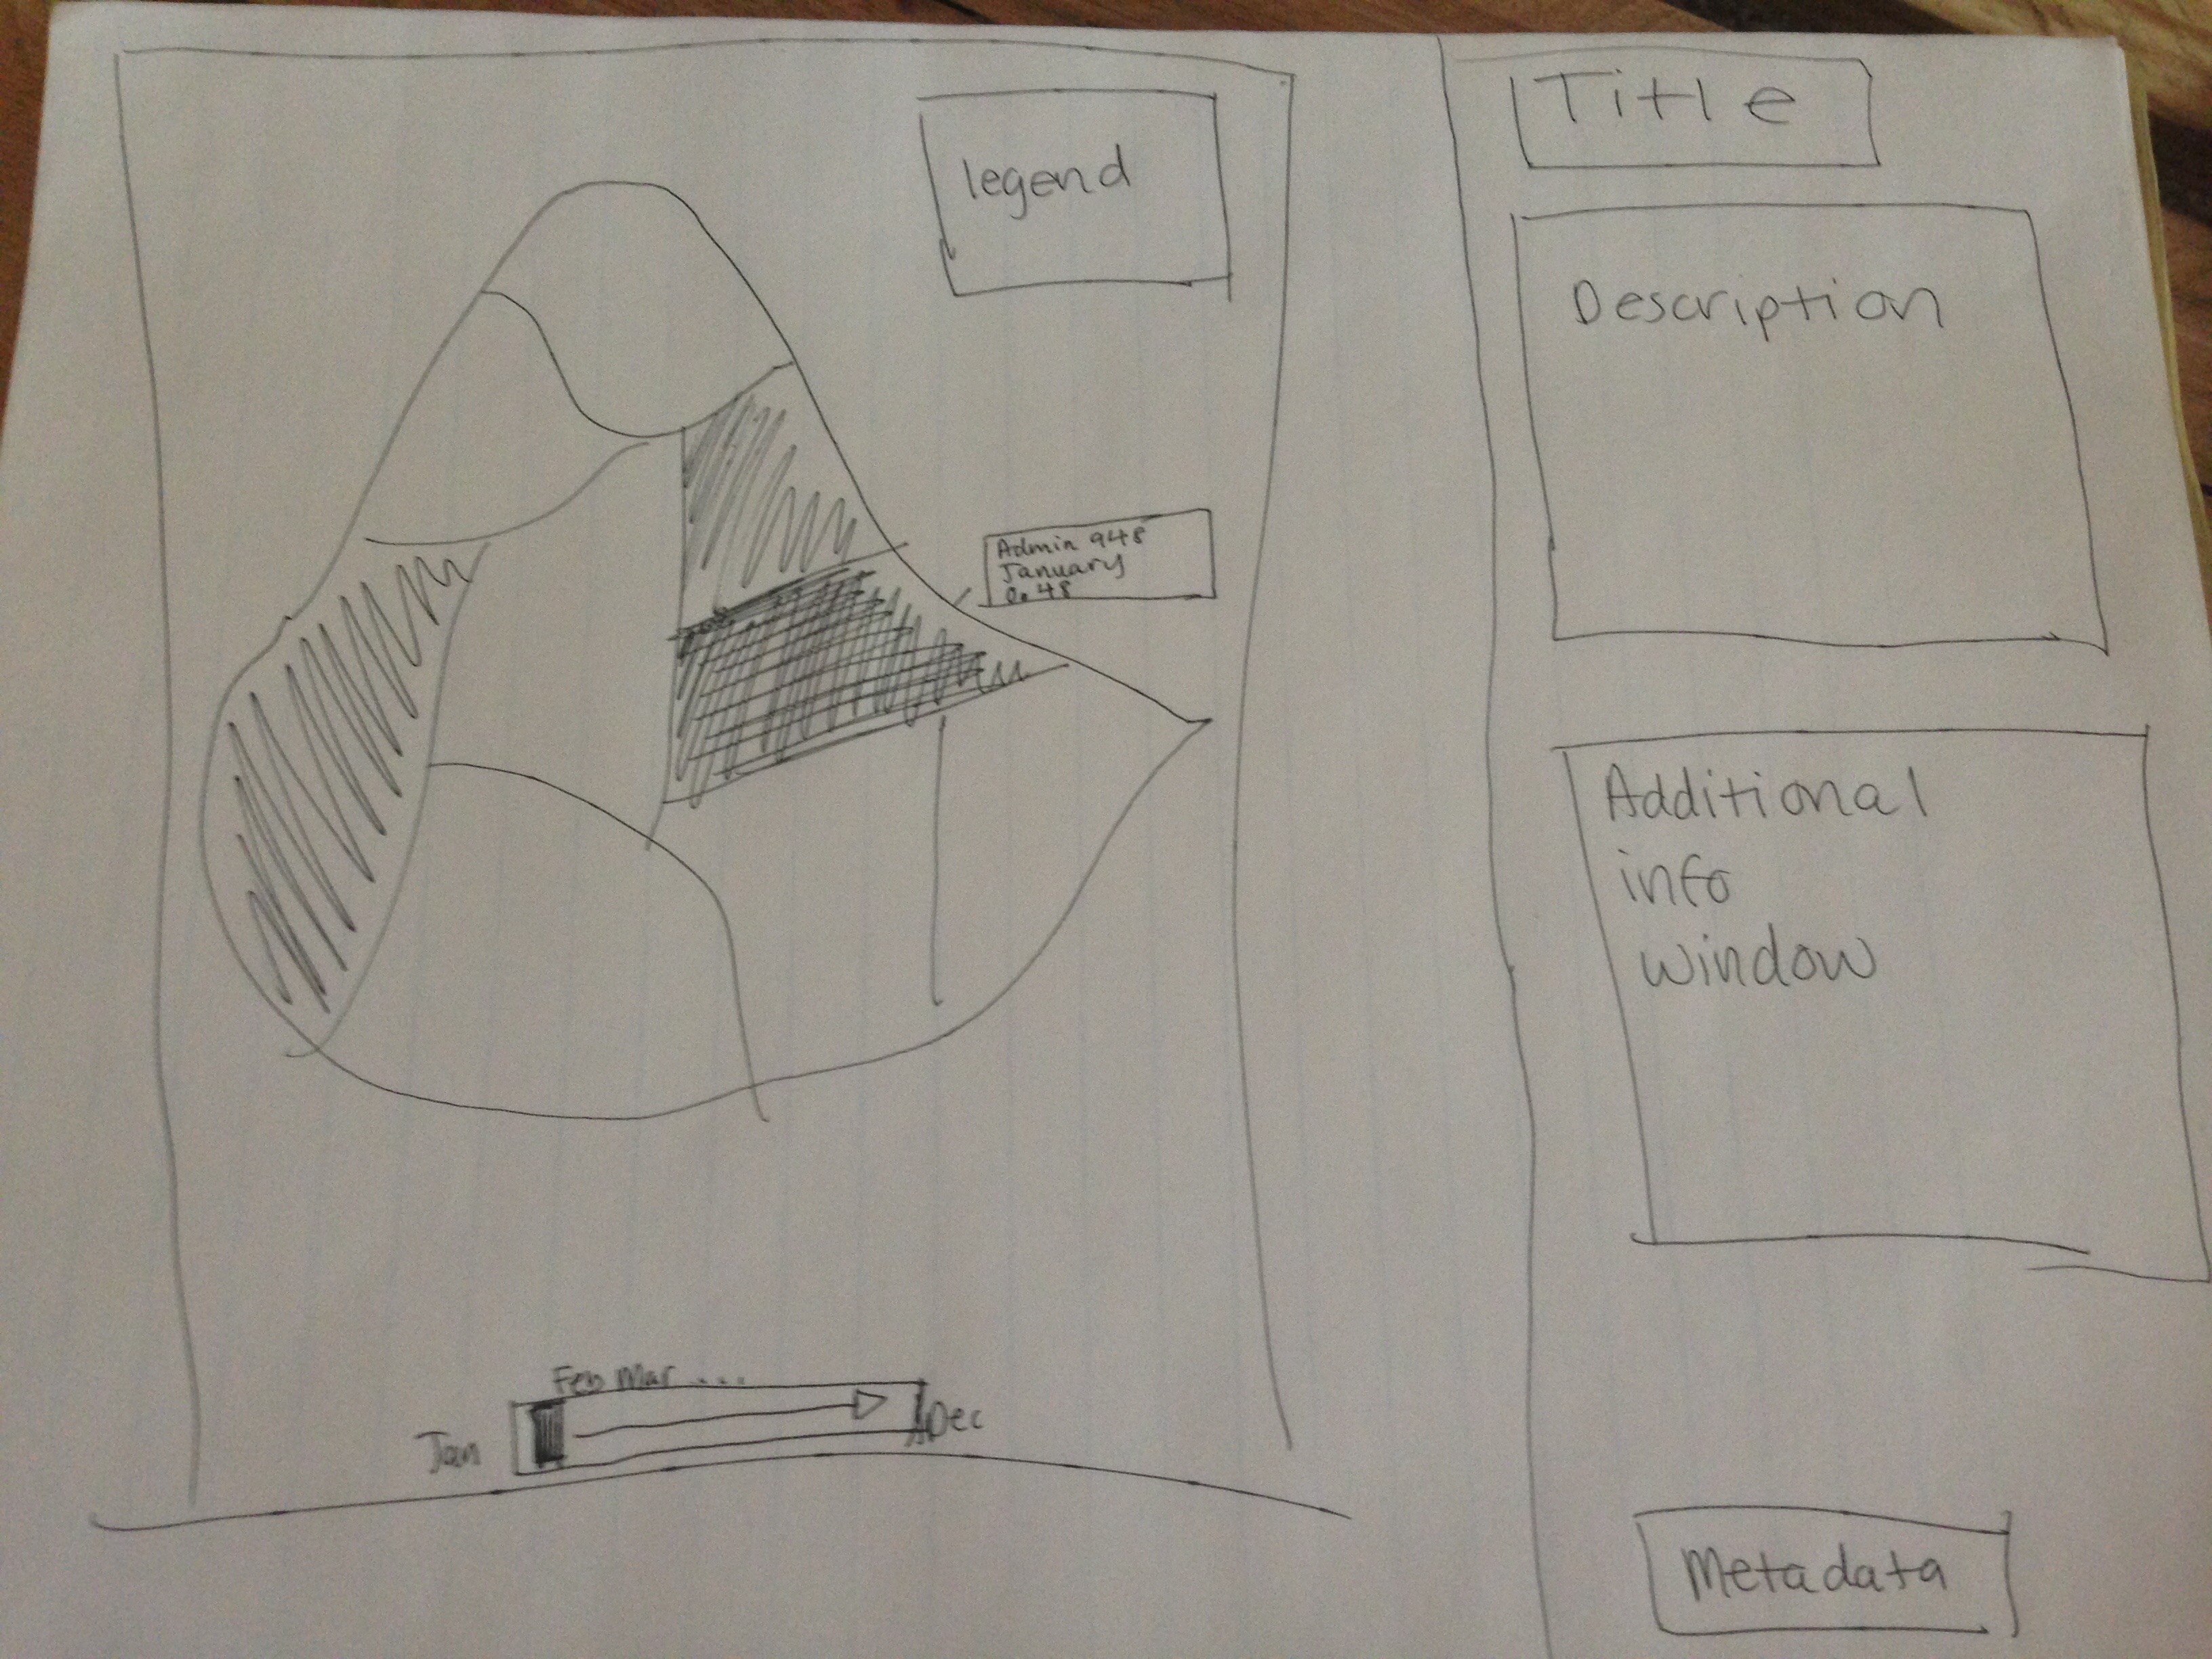 legend
Admin 948
January
0.48
Feb Mar ...
Jan
Dec
Title
Description
Additional
info
window
Metadata